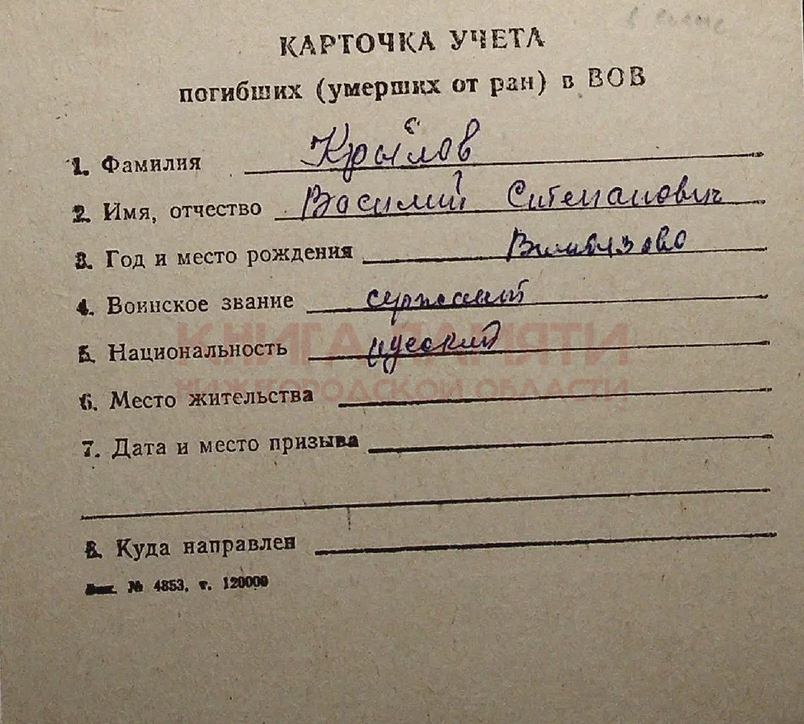 КАРТОЧКА УЧЕТА
погибших (умерших от ран) в ВОВ
1. Фамилия Крылов
2. Имя, отчество Василий Степанович
3. Год и место рождения
4. Воинское звание сержант
5. Национальность русский
КНИГА ПАМЯТИ
НИЖЕГОРОДСКОЙ ОБЛАСТИ
6. Место жительства
7. Дата и место призыва
8. Куда направлен
Зак. № 4853, т. 120000